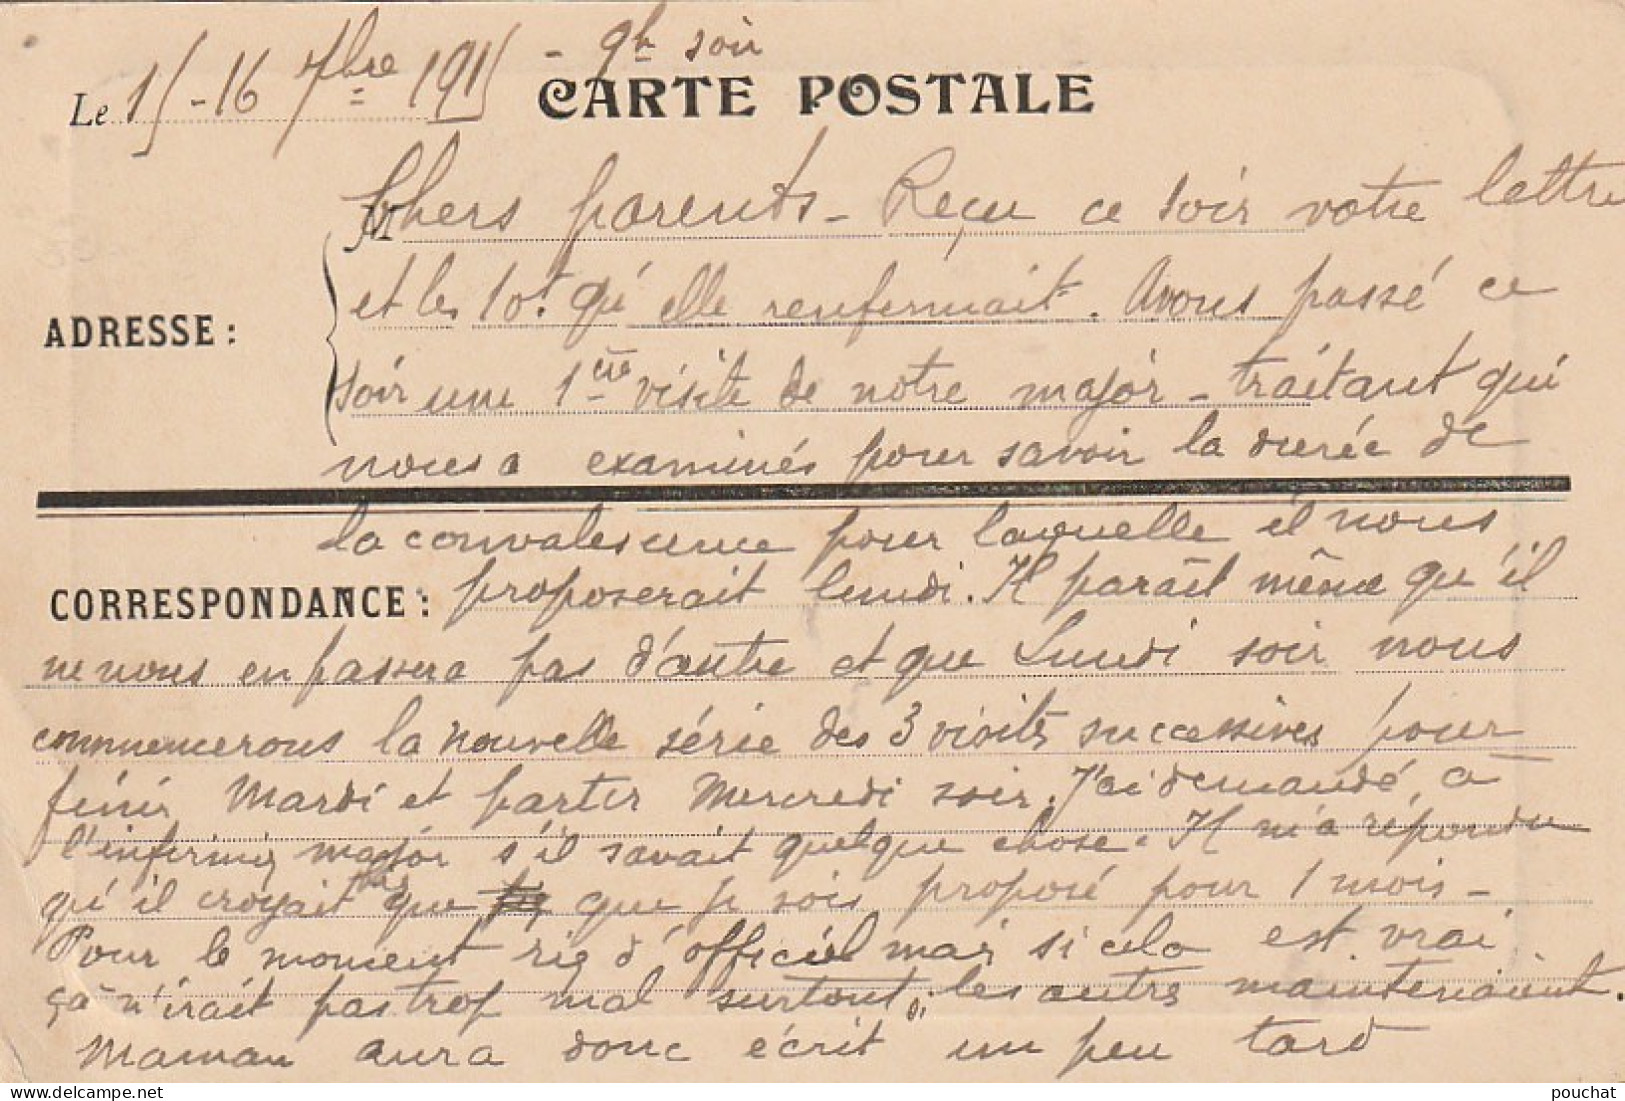 Le 15-16 7bre 1915 - 9h soir
CARTE POSTALE
M Chers parents - Reçu ce soir votre lettre
et les 10f qu'elle renfermait. Avons passé ce
ADRESSE :
soir une 1ère visite de notre major-traitant qui
nous a examinés pour savoir la durée de
la convalescence pour laquelle il nous
CORRESPONDANCE : proposerait lundi. Il paraît même qu'il
ne nous en passera pas d'autre et que Lundi soir nous
commencerons la nouvelle série des 3 visites successives pour
finir Mardi et partir Mercredi soir. J'ai demandé, à
l'infirmier major s'il savait quelque chose. Il m'a répondu
qu'il croyait bien que que je sois proposé pour 1 mois -
Pour le moment rien d'officiel mais si cela est vrai
ça n'irait pas trop mal surtout si les autres maintenaient.
Maman aura donc écrit un peu tard
pouchat